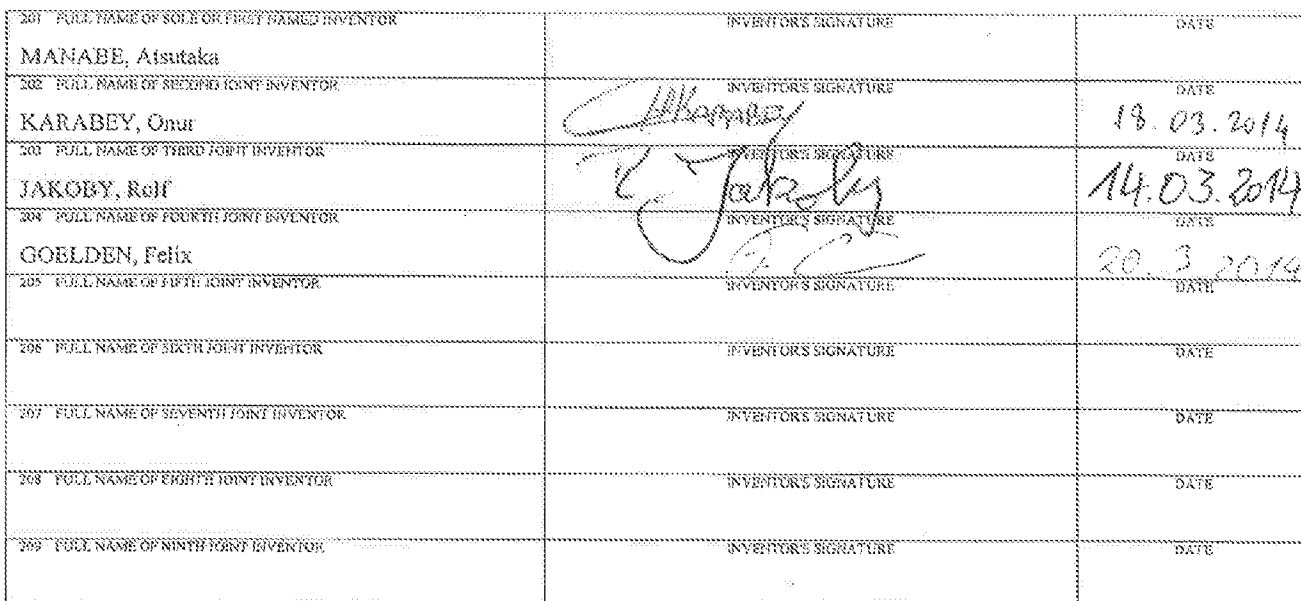 201 FULL NAME OF SOLE OR FIRST NAMED INVENTOR INVENTOR'S SIGNATURE DATE
MANABE, Atsutaka
202 FULL NAME OF SECOND JOINT INVENTOR INVENTOR'S SIGNATURE DATE
KARABEY, Onur KARABEY 18.03.2014
203 FULL NAME OF THIRD JOINT INVENTOR INVENTOR'S SIGNATURE DATE
JAKOBY, Rolf R. Jakoby 14.03.2014
204 FULL NAME OF FOURTH JOINT INVENTOR INVENTOR'S SIGNATURE DATE
GOELDEN, Felix 20.3.2014
205 FULL NAME OF FIFTH JOINT INVENTOR INVENTOR'S SIGNATURE DATE
206 FULL NAME OF SIXTH JOINT INVENTOR INVENTOR'S SIGNATURE DATE
207 FULL NAME OF SEVENTH JOINT INVENTOR INVENTOR'S SIGNATURE DATE
208 FULL NAME OF EIGHTH JOINT INVENTOR INVENTOR'S SIGNATURE DATE
209 FULL NAME OF NINTH JOINT INVENTOR INVENTOR'S SIGNATURE DATE